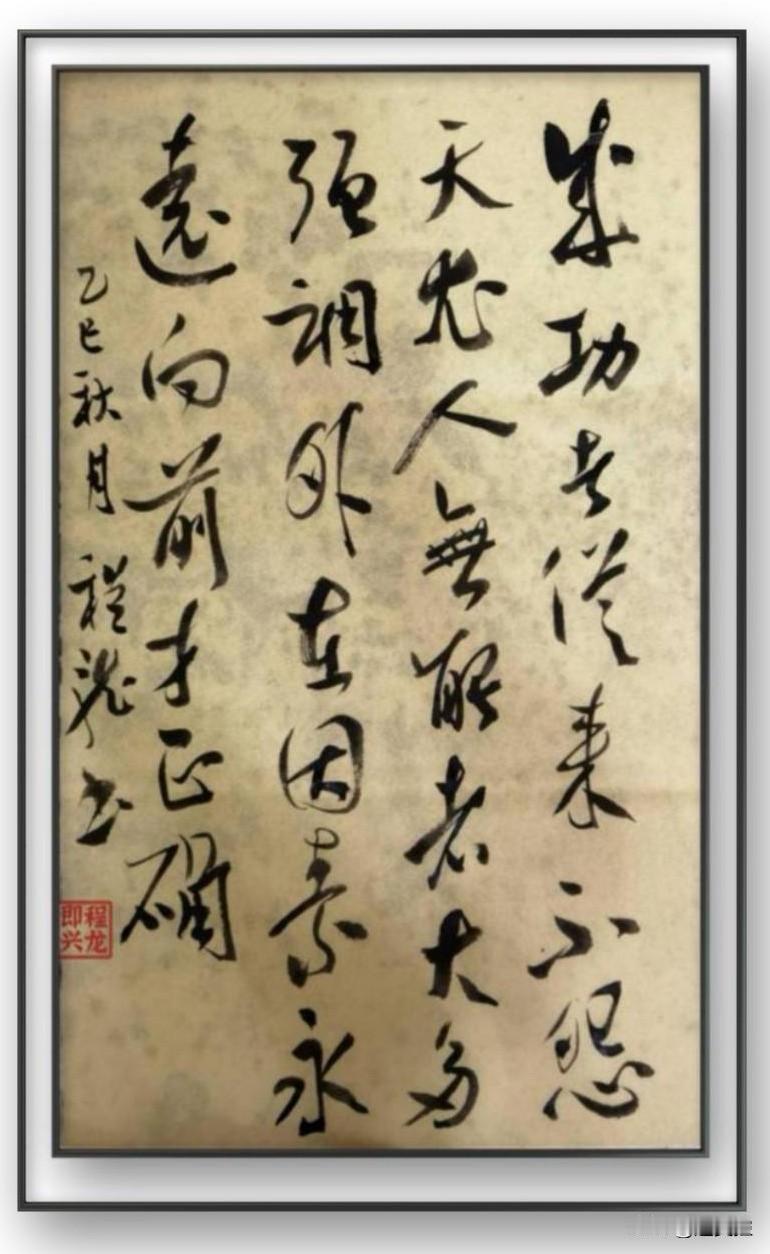 成功者從来不怨
天尤人無能者大多
强調外在因素永
遠向前才正确
乙巳秋月程龍书
程龙即兴